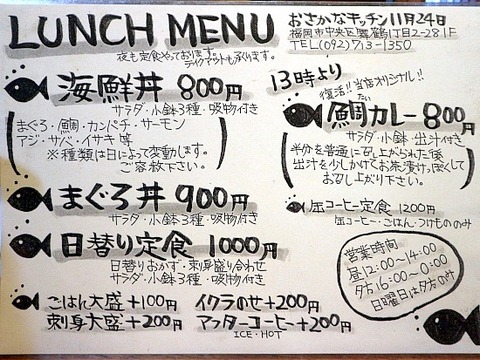 LUNCH MENU
夜も定食やっております。
テイクアウトも承ります。
おさかなキッチン11月24日
福岡市中央区舞鶴1丁目2-28 1F
TEL(092)713-1350
海鮮丼 800円
サラダ・小鉢3種・吸物付き
まぐろ・鯛・カンパチ・サーモン
アジ・サバ・イサキ 等
※種類は日によって変動します。
ご容赦下さい。
まぐろ丼 900円
サラダ・小鉢3種・吸物付き
日替り定食 1000円
日替りおかず・刺身盛り合わせ
サラダ・小鉢3種・吸物付き
ごはん大盛+100円
イクラのせ+200円
刺身大盛+200円
アフターコーヒー+200円
ICE・HOT
13時より
復活!!当店オリジナル!!
たい
鯛カレー 800円
サラダ・小鉢・出汁付き
半分を普通に召し上がられた後
出汁を少しかけてお茶漬けっぽくして
お召し上がり下さい。
缶コーヒー定食 1200円
缶コーヒー・ごはん・つけもののみ
営業時間
昼12:00~14:00
夕方16:00~0:00
日曜日は夕方のみ